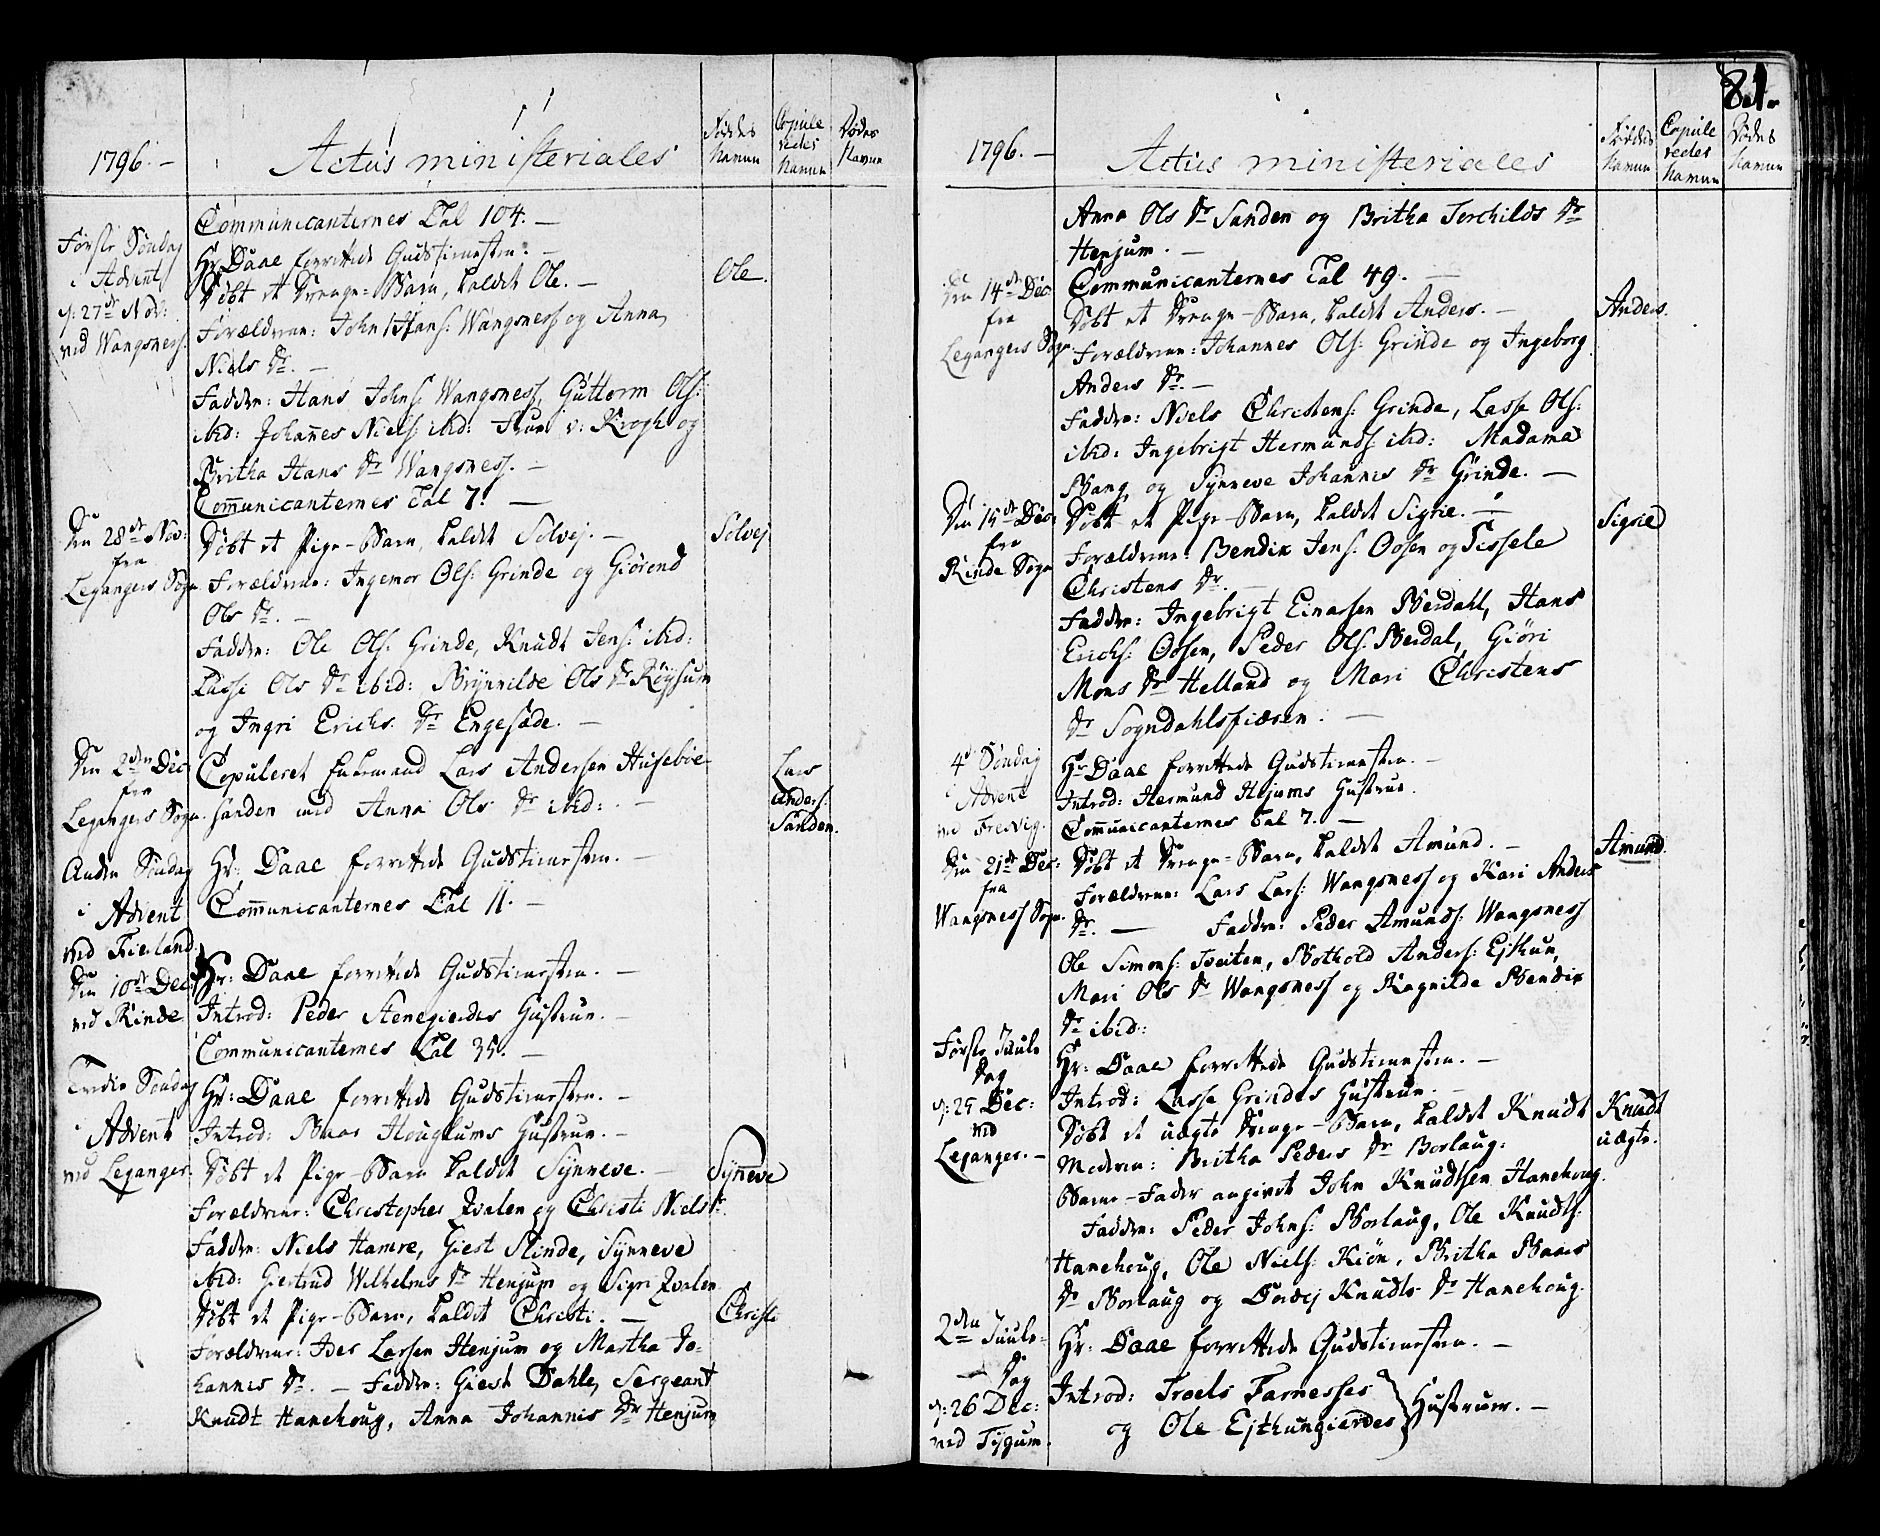 1796. –
Actus ministeriales
Føddes Navne
Copuleredes Navne
Dødes Navne
Communicanternes Tal 104. –
Første Søndag
i Advent
d: 27de Nov:
ved Wangsness.
Hr. Daae forrettede Gudstienesten. –
Døbt et Drenge-Barn, kaldet Ole. –
Ole.
Forældrene: John Hans: Wangsness og Anna
Niels Dr. –
Faddere: Hans Johns: Wangsness, Guttorm Ols:
ibid: Johannes Niels: ibid: Frue v: Krogh og
Britha Hans Dr Wangsness. –
Communicanternes Tal 7. –
Den 28de Nov:
fra
Legangers Sogn
Døbt et Pige-Barn, kaldet Solvej. –
Solvej
Forældrene: Ingemor Ols: Grinde og Giørend
Ols Dr. –
Faddere: Ole Ols: Grinde, Knudt Jens: ibid:
Lussi Ols Dr ibid: Brynnilde Ols Dr Røysum
og Ingri Erichs Dr Engesæde. –
Den 2den Dec
fra
Legangers Sogn.
Copuleret Enkemand Lars Andersen Husebøe-
sanden med Anna Ols Dr ibid: –
Lars
Anders:
Sanden.
Anden Søndag
i Advent
ved Fierland.
Hr: Daae forrettede Gudstienesten. –
Communicanternes Tal 11. –
Den 10de Dec:
ved Rinde
Hr: Daae forrettede Gudstienesten. –
Introd: Peder Stenegierdes Hustrue. –
Communicanternes Tal 35. –
Tredie Søndag
i Advent
ved Leganger.
Hr: Daae forrettede Gudstienesten. –
Introd: Baar Houglums Hustrue. –
Døbt et Pige-Barn kaldet Synneve. –
Synneve
Forældrene: Christopher Qvalen og Christi Niels Dr.
Faddere: Niels Hamre, Giest Slinde, Synneve
ibid: Giertrud Wilhelms Dr Henjum og Sigri Qvalen
Døbt et Pige-Barn, kaldet Christi. –
Christi
Forældrene: Iver Larsen Henjum og Martha Jo-
hannis Dr. – Faddere: Giest Dahle, Sergeant
Knudt Hanehoug, Anna Johannis Dr Henjum
81.
1796. –
Actus ministeriales
Føddes Navne
Copuleredes Navne
Dødes Navne
Anna Ols Dr Sanden og Britha Torchilds Dr
Henjum. –
Communicanternes Tal 49. –
Den 14de Dec:
fra
Legangers Sogn.
Døbt et Drenge-Barn, kaldet Anders. –
Anders.
Forældrene: Johannes Ols: Grinde og Ingeborg
Anders Dr. –
Faddere: Niels Christens: Grinde, Lasse Ols:
ibid: Ingebrigt Hermunds: ibid: Madame
Bang og Synneve Johannis Dr Grinde. –
Den 15de Dec:
fra
Rinde Sogn
Døbt et Pige-Barn, kaldet Sigrie. –
Sigrie
Forældrene: Bendix Jens: Oosen og Sissele
Christens Dr. –
Faddere: Ingebrigt Einarsen Berdahl, Hans
Erichs: Oosen, Peder Ols: Berdal, Giøri
Mons Dr Helland og Mari Christens
Dr Sogndahlsfiæren. –
4de Søndag
i Advent
ved Fresvig.
Hr: Daae forrettede Gudstienesten. –
Introd: Hermund Hejums Hustrue.
Communicanternes Tal 7. –
Den 21de Dec:
fra
Wangsness Sogn.
Døbt et Drenge-Barn, kaldet Amund. –
Amund.
Forældrene: Lars Lars: Wangsness og Kari Anders
Dr. – Faddere: Peder Amunds: Wangsness
Ole Simons: Tveiten, Bothold Anders: Ejthun,
Mari Ols Dr Wangsness og Ragnilde Bendix
Dr ibid:
Første Juule
Dag
d: 25 Dec:
ved
Leganger. –
Hr: Daae forrettede Gudstienesten. –
Introd: Lasse Grindes Hustrue. –
Døbt et uægte Drenge-Barn, kaldet Knudt
Knudt
uægte.
Moderen: Britha Peders Dr Borlaug:
Barne-Fader angivet John Knudtsen Hanehoug.
Faddere: Peder Johns: Borlaug, Ole Knudts:
Hanehoug, Ole Niels: Kiøn, Britha Baars
Dr Borlaug og Dordej Knudts Dr Hanehoug.
2den Juule-
Dag
d: 26 Dec:
ved Tjgum.
Hr: Daae forrettede Gudstienesten. –
Introd: Troels Farnesses
og Ole Ejthungierdes } Hustruer. –